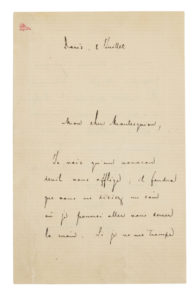 Paris. 2 Juillet
Mon cher Montesquiou,
Je vois qu'un nouveau
deuil vous afflige, il faudra
que vous me disiez un soir
où je pourrai aller vous serrer
la main. Si je ne me trompe